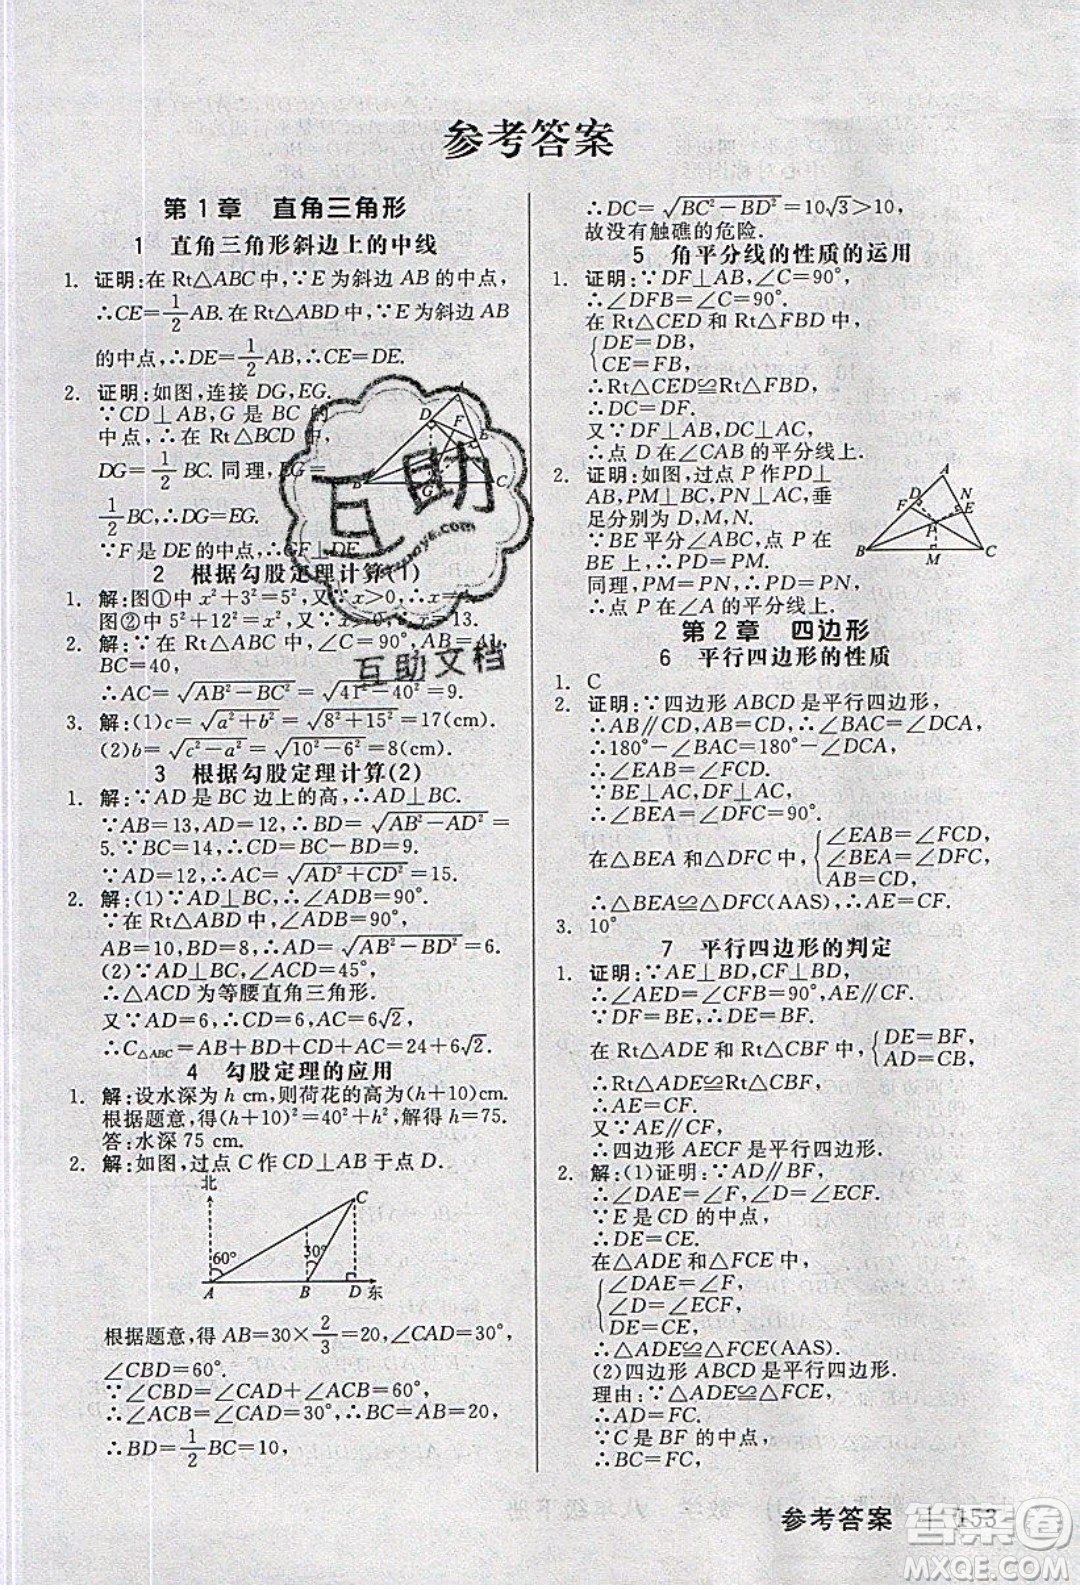 参考答案
第1章 直角三角形
1 直角三角形斜边上的中线
1. 证明:在Rt△ABC中,∵E为斜边AB的中点,
∴CE=1/2AB.在Rt△ABD中,∵E为斜边AB
的中点,∴DE=1/2AB,∴CE=DE.
2. 证明:如图,连接DG,EG.
∵CD⊥AB,G是BC的
中点,∴在Rt△BCD中,
DG=1/2BC.同理,EG=
1/2BC,∴DG=EG.
∵F是DE的中点,∴GF⊥DE.
2 根据勾股定理计算(1)
1. 解:图①中x²+3²=5²,又∵x>0,∴x=4.
图②中5²+12²=x²,又∵x>0,∴x=13.
2. 解:∵在Rt△ABC中,∠C=90°,AB=41,
BC=40,
∴AC=√(AB²-BC²)=√(41²-40²)=9.
3. 解:(1)c=√(a²+b²)=√(8²+15²)=17(cm).
(2)b=√(c²-a²)=√(10²-6²)=8(cm).
3 根据勾股定理计算(2)
1. 解:∵AD是BC边上的高,
∵AB=13,AD=12,∴BD=√(AB²-AD²)=
5.∵BC=14,∴DC=BC-BD=9.
∵AD=12,∴AC=√(AD²+CD²)=15.
2. 解:(1)∵AD⊥BC,∴∠ADB=90°.
∵在Rt△ABD中,∠ADB=90°,
AB=10,BD=8,∴AD=√(AB²-BD²)=6.
(2)∵AD⊥BC,∠ACD=45°,
∴△ACD为等腰直角三角形.
又∵AD=6,∴CD=6,AC=6√2,
∴C△ABC=AB+BC+AC=24+6√2.
4 勾股定理的应用
1. 解:设水深为h cm,则荷花的高为(h+10)cm.
根据题意,得(h+10)²=40²+h²,解得h=75.
答:水深75 cm.
2. 解:如图,过点C作CD⊥AB于点D.
北
C
60°
30°
A B D 东
根据题意,得AB=30×2/3=20,∠CAD=30°,
∠CBD=60°.
∵∠CBD=∠CAD+∠ACB,
∴∠ACB=∠CAD=30°,∴BC=AB=20,
∴BD=1/2BC=10,
∴DC=√(BC²-BD²)=10√3>10,
故没有触礁的危险.
5 角平分线的性质的运用
1. 证明:∵DF⊥AB,∠C=90°,
∴∠DFB=∠C=90°.
在Rt△CED和Rt△FBD中,
{DE=DB,
CE=FB,
∴Rt△CED≌Rt△FBD,
∴DC=DF.
又∵DF⊥AB,∠C=90°,
∴点D在∠CAB的平分线上.
2. 证明:如图,过点P作PD⊥
AB,PM⊥BC,PN⊥AC,垂
足分别为D,M,N.
∵BE平分∠ABC,点P在
BE上,∴PD=PM.
同理,PM=PN,∴PD=PN,
∴点P在∠A的平分线上.
A
D
F
N
E
P
B M C
第2章 四边形
6 平行四边形的性质
1. C
2. 证明:∵四边形ABCD是平行四边形,
∴AB∥CD,AB=CD,∴∠BAC=∠DCA,
∴180°-∠BAC=180°-∠DCA,
∴∠EAB=∠FCD.
∵BE⊥AC,DF⊥AC,
∴∠BEA=∠DFC=90°.
在△BEA和△DFC中,{∠EAB=∠FCD,
∠BEA=∠DFC,
AB=CD,
∴△BEA≌△DFC(AAS),∴AE=CF.
3. 10°
7 平行四边形的判定
1. 证明:∵AE⊥BD,CF⊥BD,
∴∠AED=∠CFB=90°,AE∥CF.
∵DF=BE,∴DE=BF.
在Rt△ADE和Rt△CBF中,{DE=BF,
AD=CB,
∴Rt△ADE≌Rt△CBF,
∴AE=CF.
又∵AE∥CF,
∴四边形AECF是平行四边形.
2. 解:(1)证明:∵AD∥BF,
∴∠DAE=∠F,∠D=∠ECF.
∵E是CD的中点,
∴DE=CE.
在△ADE和△FCE中,
{∠DAE=∠F,
∠D=∠ECF,
DE=CE,
∴△ADE≌△FCE(AAS).
(2)四边形ABCD是平行四边形.
理由:∵△ADE≌△FCE,
∴AD=FC.
∵C是BF的中点,
∴BC=FC,
参考答案 153
互助
互助文档
答案圈
MXQE.COM